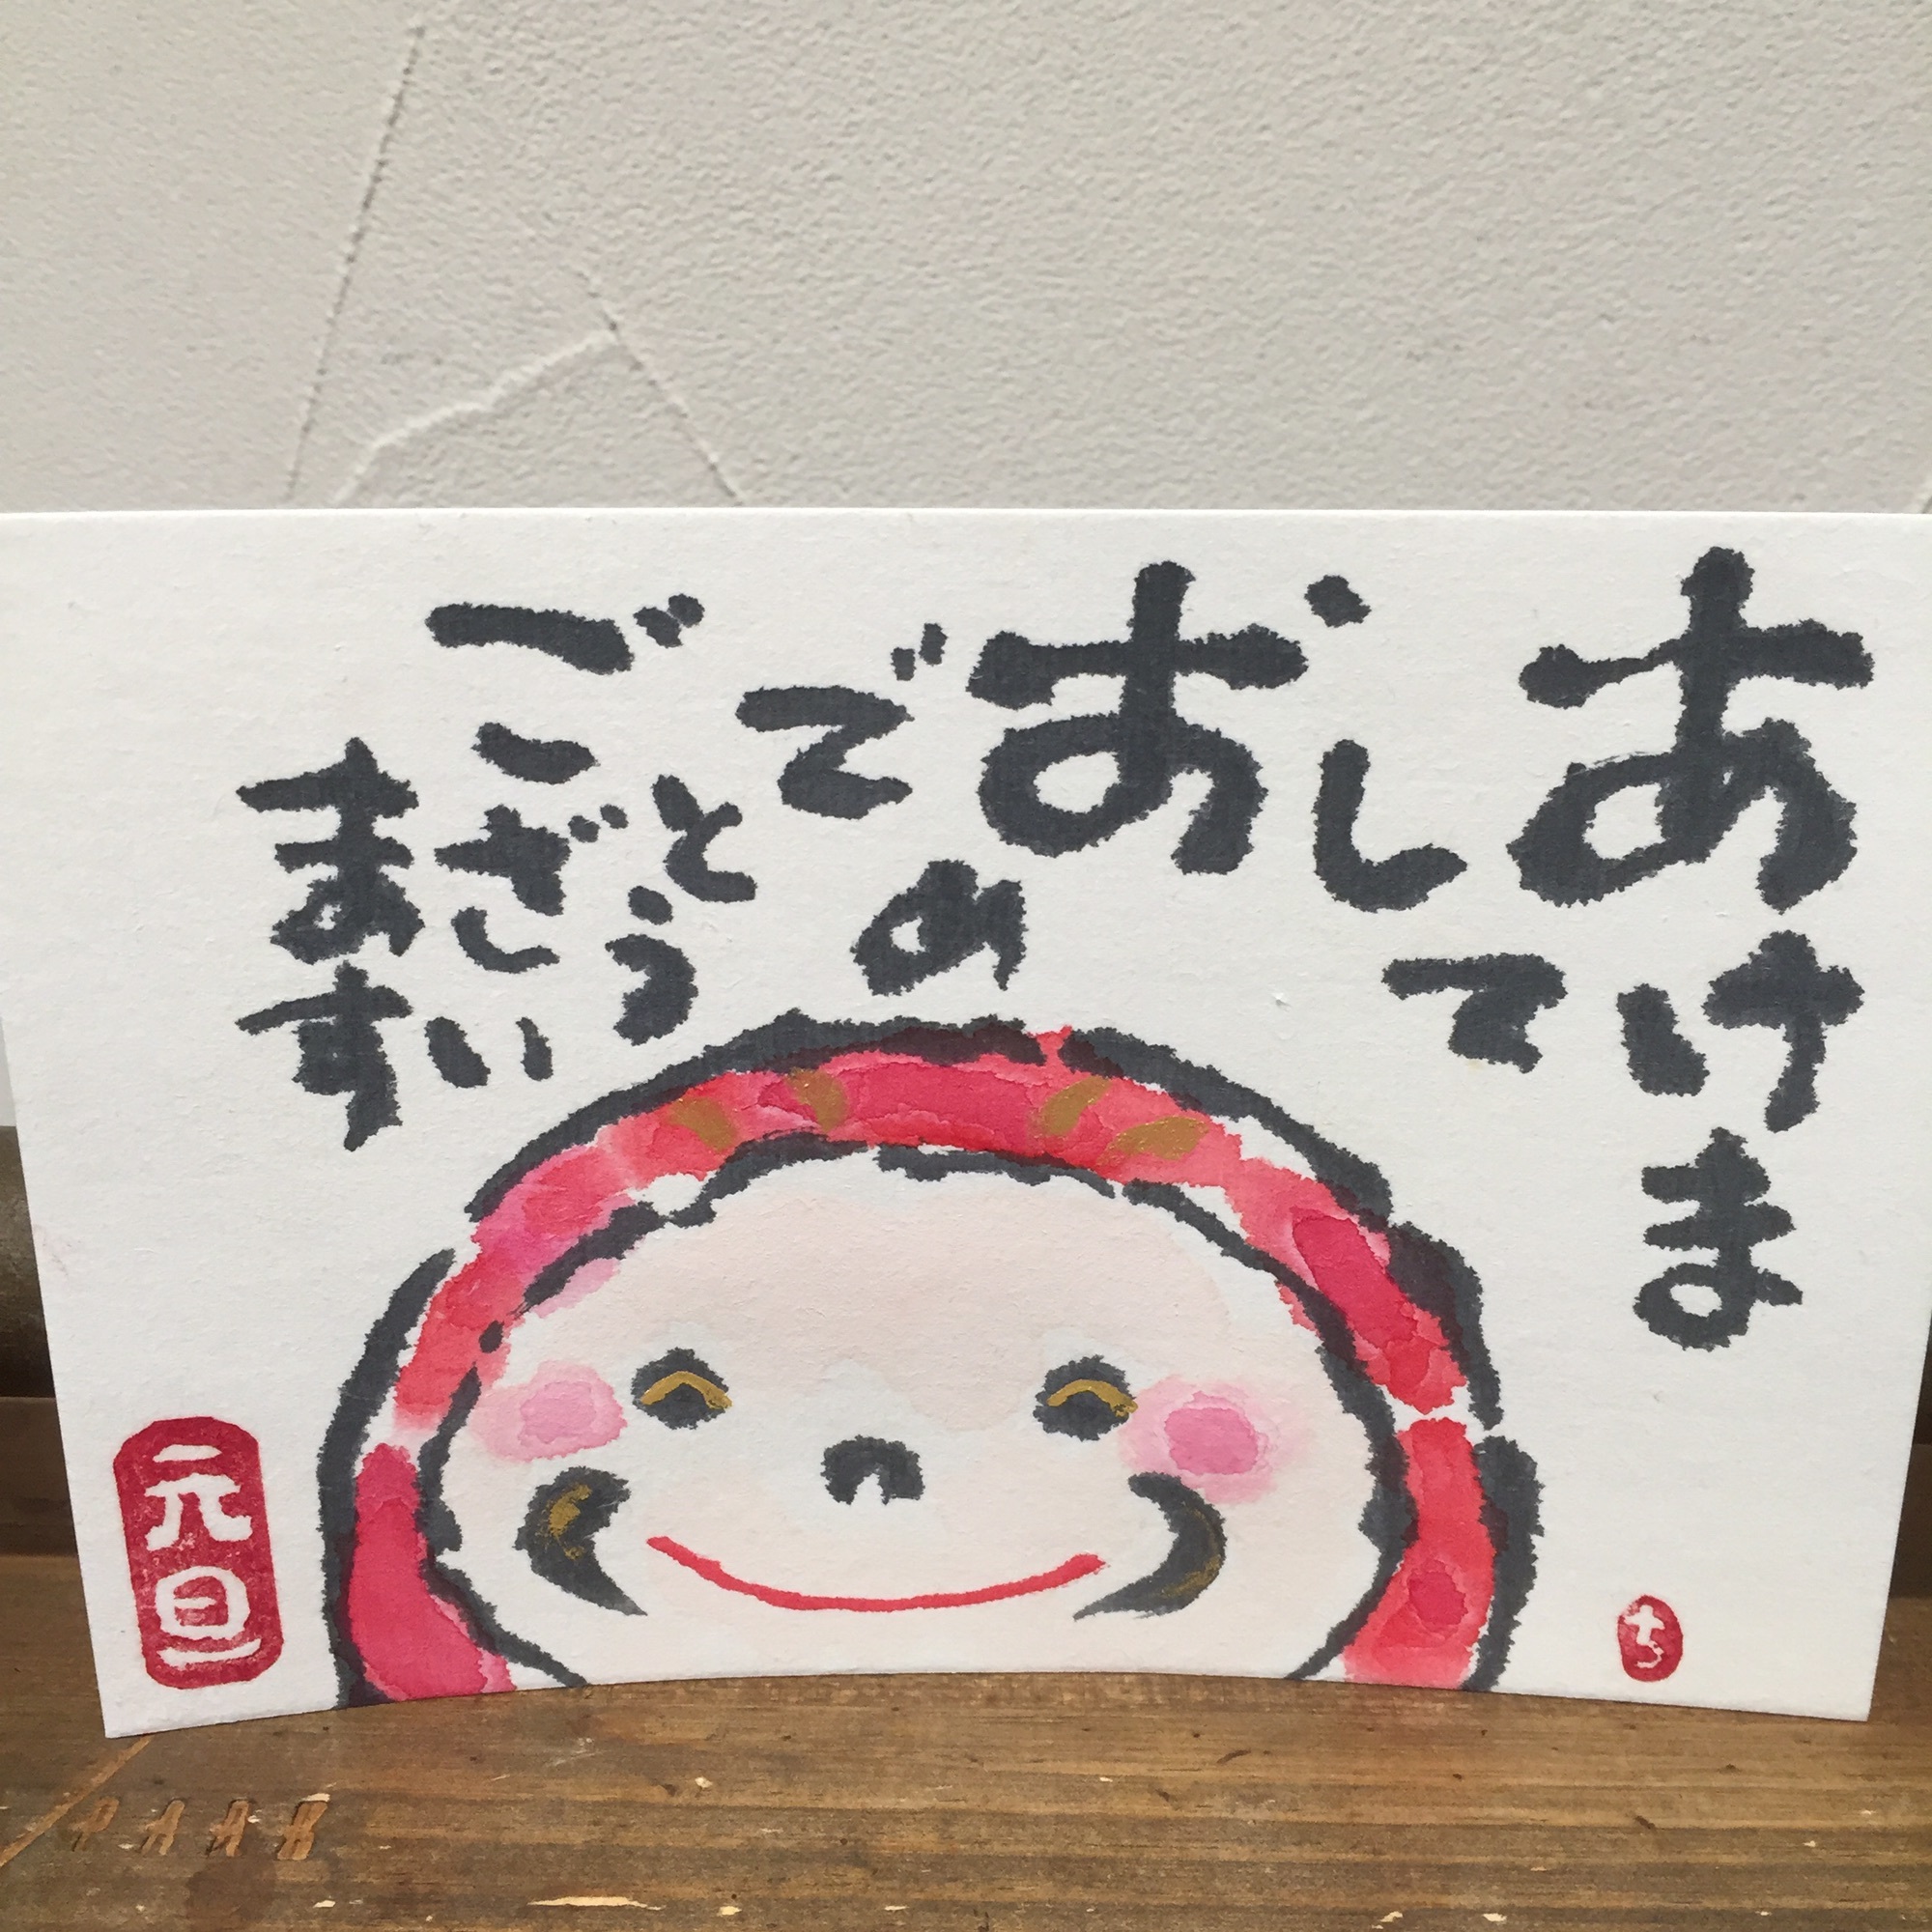 あけま
して
お
めでとう
ござい
ます
元旦
ち